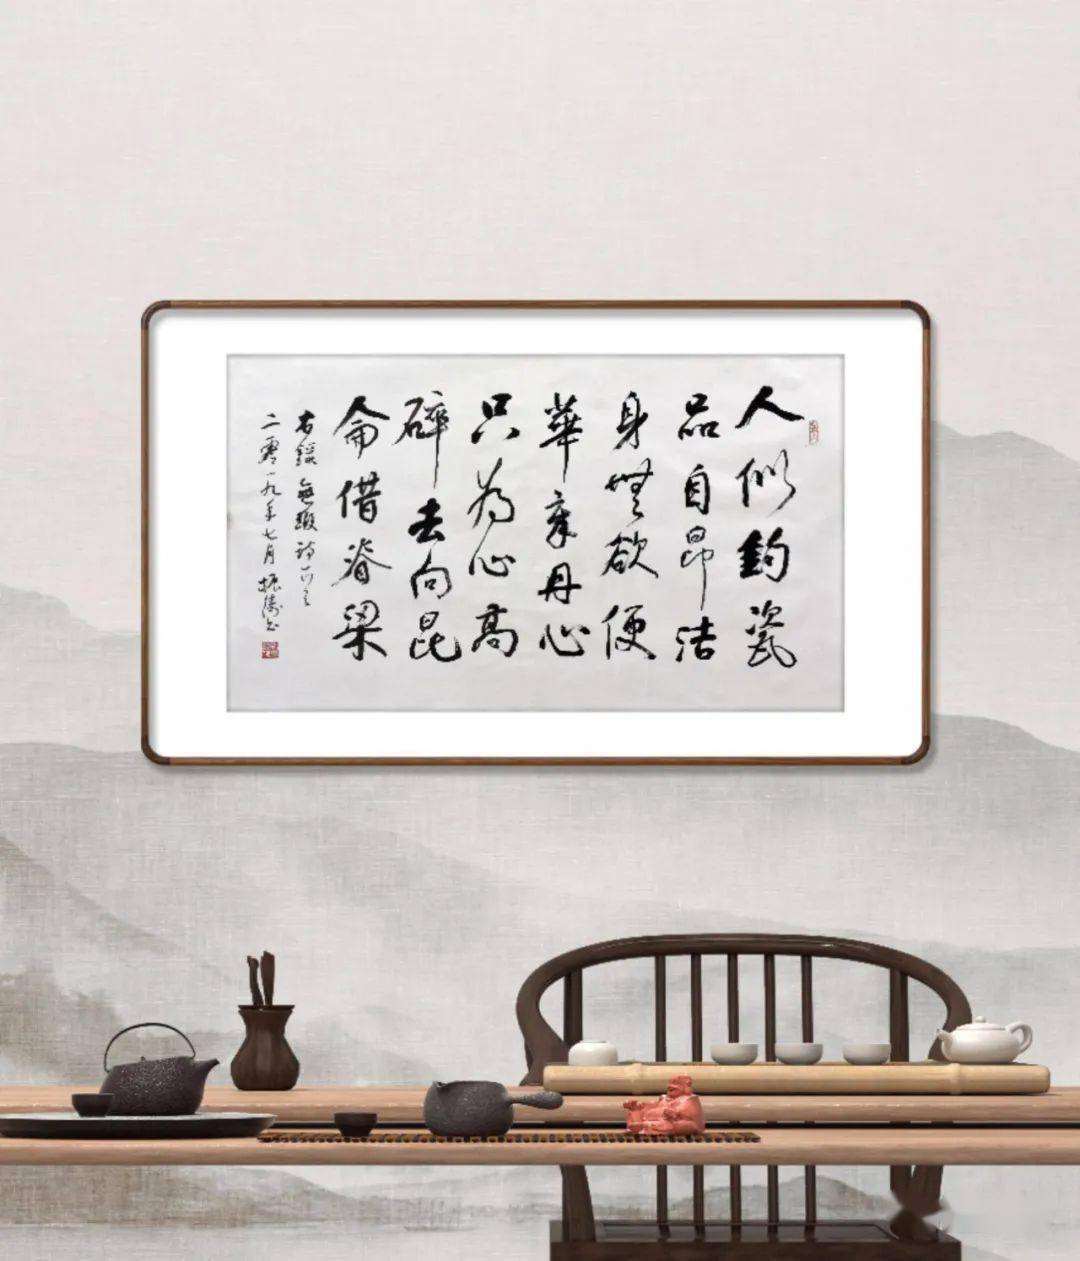 人似鈞瓷
品自昂洁
身無欲便
華章丹心
只為心高
碎去向昆
侖借脊梁
右録無瑕詩
二零一九年七月振濤书